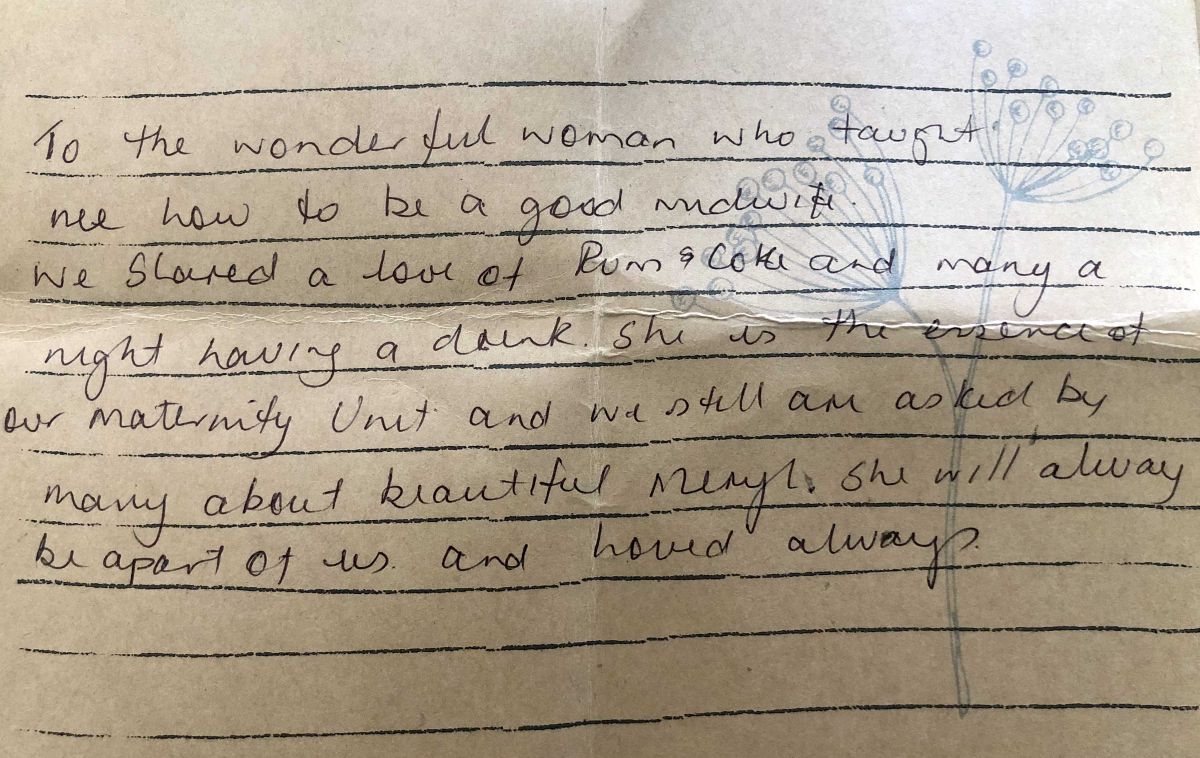 To the wonderful woman who taught
me how to be a good midwife.
We Shared a love of Rum & Coke and many a
night having a drink. She is the essence of
our maternity Unit and we still are asked by
many about beautiful Meryl. She will alway
be apart of us. and loved always.